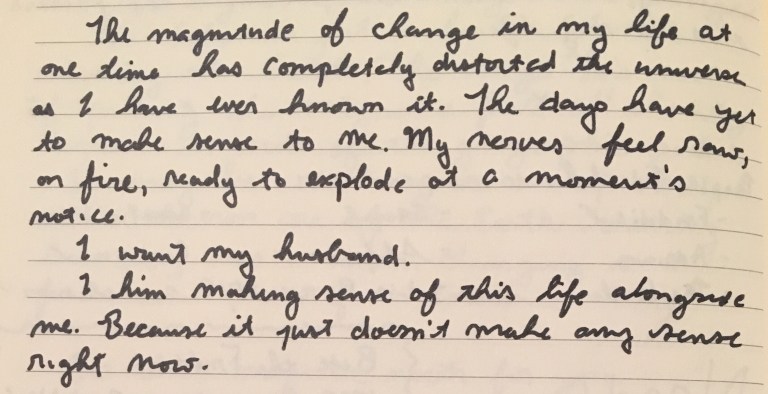 The magnitude of change in my life at
one time has completely distorted the universe
as I have ever known it. The days have yet
to make sense to me. My nerves feel raw,
on fire, ready to explode at a moment's
notice.
I want my husband.
I him making sense of this life alongside
me. Because it just doesn't make any sense
right now.